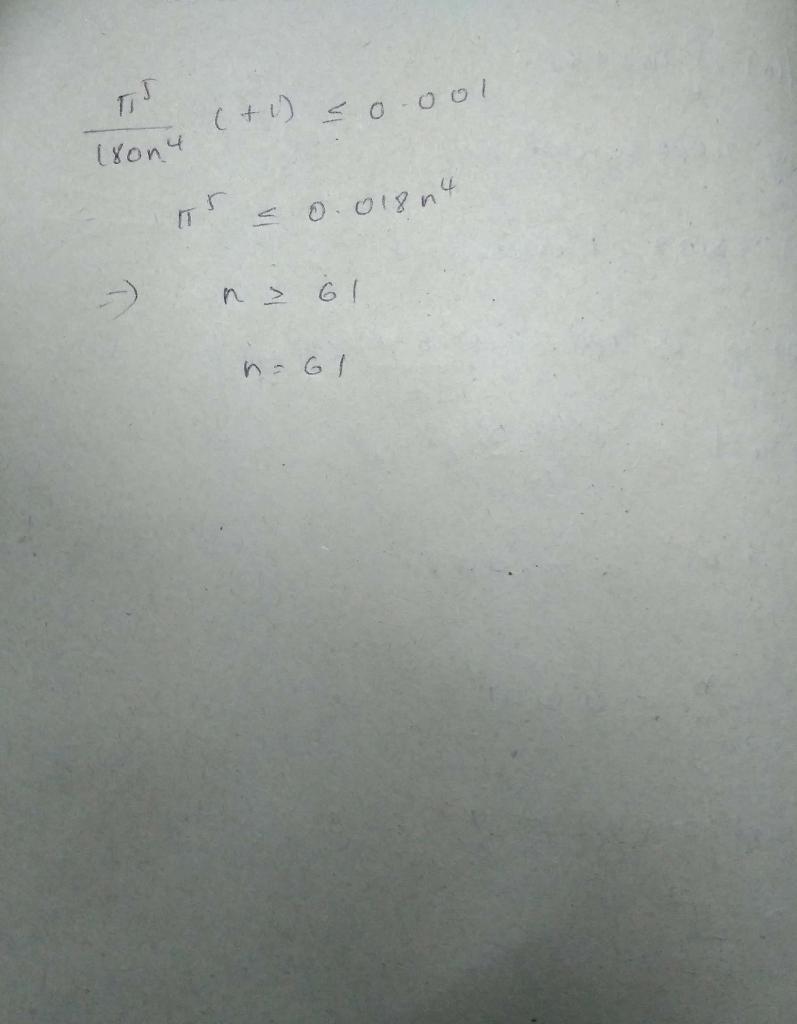 π⁵/180n⁴ (+1) ≤ 0.001
π⁵ ≤ 0.018n⁴
⇒ n ≥ 61
n = 61